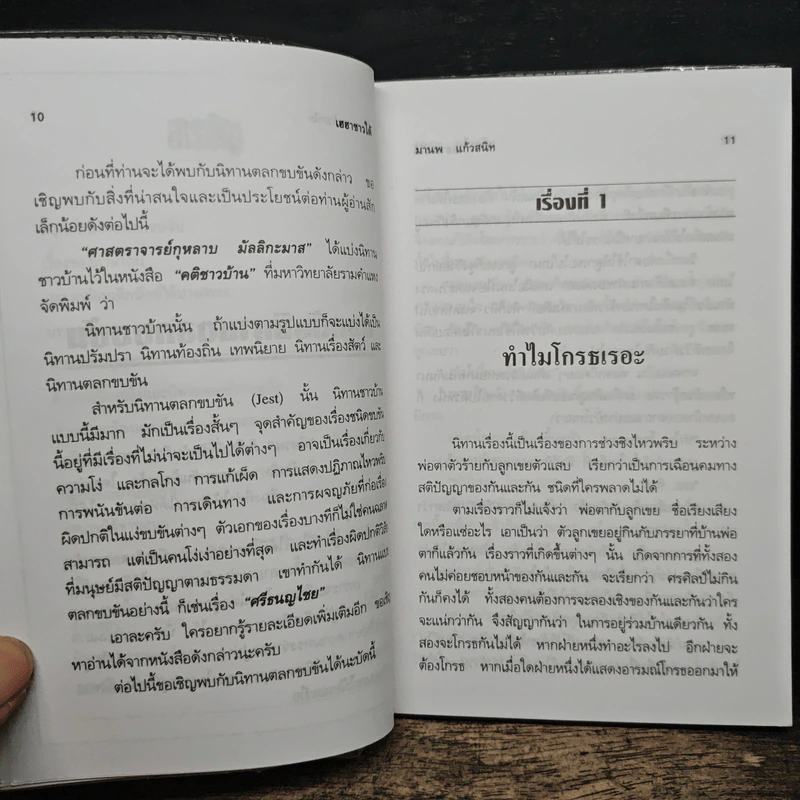 10
เฮฮาชาวใต้
ก่อนที่ท่านจะได้พบกับนิทานตลกขบขันดังกล่าว ขอ
เชิญพบกับสิ่งที่น่าสนใจและเป็นประโยชน์ต่อท่านผู้อ่านสัก
เล็กน้อยดังต่อไปนี้
“ศาสตราจารย์กุหลาบ มัลลิกะมาส” ได้แบ่งนิทาน
ชาวบ้านไว้ในหนังสือ “คติชาวบ้าน” ที่มหาวิทยาลัยรามคำแหง
จัดพิมพ์ ว่า
นิทานชาวบ้านนั้น ถ้าแบ่งตามรูปแบบก็จะแบ่งได้เป็น
นิทานปรัมปรา นิทานท้องถิ่น เทพนิยาย นิทานเรื่องสัตว์ และ
นิทานตลกขบขัน
สำหรับนิทานตลกขบขัน (Jest) นั้น นิทานชาวบ้าน
แบบนี้มีมาก มักเป็นเรื่องสั้นๆ จุดสำคัญของเรื่องชนิดขบขัน
นี้อยู่ที่มีเรื่องที่ไม่น่าจะเป็นไปได้ต่างๆ อาจเป็นเรื่องเกี่ยวกับ
ความโง่ และกลโกง การแก้เผ็ด การแสดงปฏิภาณไหวพริบ
การพนันขันต่อ การเดินทาง และการผจญภัยที่ก่อเรื่อง
ผิดปกติในแง่ขบขันต่างๆ ตัวเอกของเรื่องบางทีก็ไม่ใช่คนฉลาด
สามารถ แต่เป็นคนโง่เง่าอย่างที่สุด และทำเรื่องผิดปกติวิสัย
ที่มนุษย์มีสติปัญญาตามธรรมดา เขาทำกันได้ นิทานแบบ
ตลกขบขันอย่างนี้ ก็เช่นเรื่อง “ศรีธนญไชย”
เอาละครับ ใครอยากรู้รายละเอียดเพิ่มเติมอีก ขอเชิญ
หาอ่านได้จากหนังสือดังกล่าวนะครับ
ต่อไปนี้ขอเชิญพบกับนิทานตลกขบขันได้นะบัดนี้
มานพ แก้วสนิท
11
เรื่องที่ 1
ทำไมโกรธเรอะ
นิทานเรื่องนี้เป็นเรื่องของการช่วงชิงไหวพริบ ระหว่าง
พ่อตาตัวร้ายกับลูกเขยตัวแสบ เรียกว่าเป็นการเฉือนคมทาง
สติปัญญาของกันและกัน ชนิดที่ใครพลาดไม่ได้
ตามเรื่องราวก็ไม่แจ้งว่า พ่อตากับลูกเขย ชื่อเรียงเสียง
ใดหรือแซ่อะไร เอาเป็นว่า ตัวลูกเขยอยู่กินกับภรรยาที่บ้านพ่อ
ตาก็แล้วกัน เรื่องราวที่เกิดขึ้นต่างๆ นั้น เกิดจากการที่ทั้งสอง
คนไม่ค่อยชอบหน้าของกันและกัน จะเรียกว่า ศรศิลป์ไม่กิน
กันก็คงได้ ทั้งสองคนต้องการจะลองเชิงของกันและกันว่าใคร
จะแน่กว่ากัน จึงสัญญากันว่า ในการอยู่ร่วมบ้านเดียวกัน ทั้ง
สองจะโกรธกันไม่ได้ หากฝ่ายหนึ่งทำอะไรลงไป อีกฝ่ายจะ
ต้องโกรธ หากเมื่อใดฝ่ายหนึ่งได้แสดงอารมณ์โกรธออกมาให้